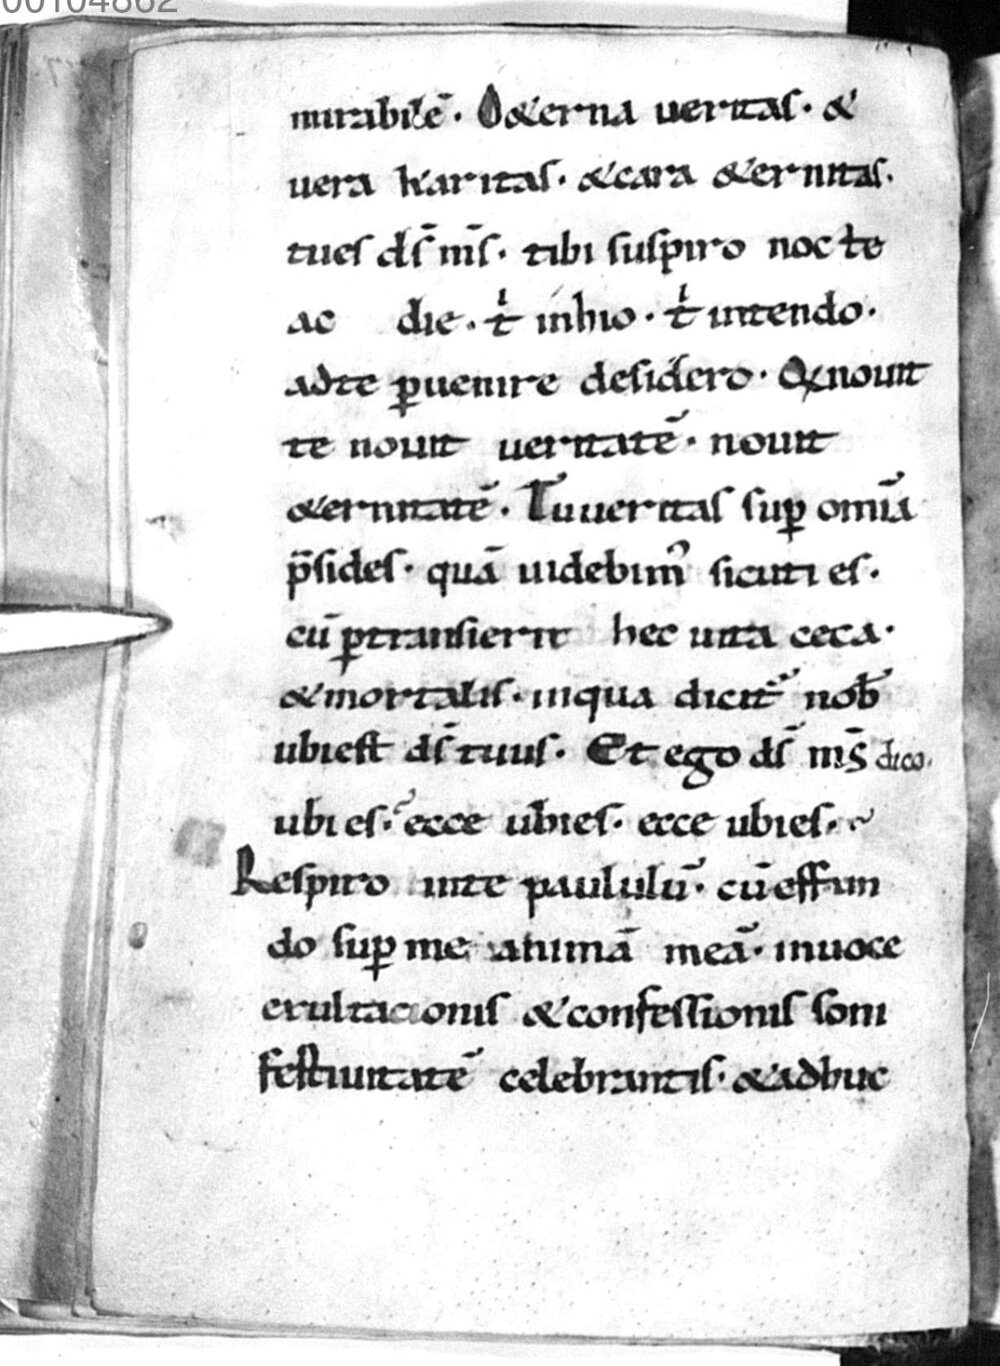 00104862
mirabilē. O &erna ueritas. &
uera karitas. & cara &ernitas.
tu es ds̄ ms̄. tibi suspiro nocte
ac die. tⁱ inhio. tⁱ intendo.
ad te ꝑuenire desidero. Q̇ nouit
te nouit ueritatē. nouit
&ernitatē. Tu ueritas suꝑ om̄ia
p̄sides. quā uidebimꝰ sicuti es.
cū ꝑtransierit hec uita ceca.
& mortalis. in qua dicit᷑ nob̄
ubi est ds̄ tuus. Et ego ds̄ ms̄ dico.
ubi es. ecce ubi es. ecce ubi es.
Respiro in te paululū. cū effun
do suꝑ me animā meā. in uoce
exultacionis & confessionis soni
festiuitatē celebrantis. & adhuc